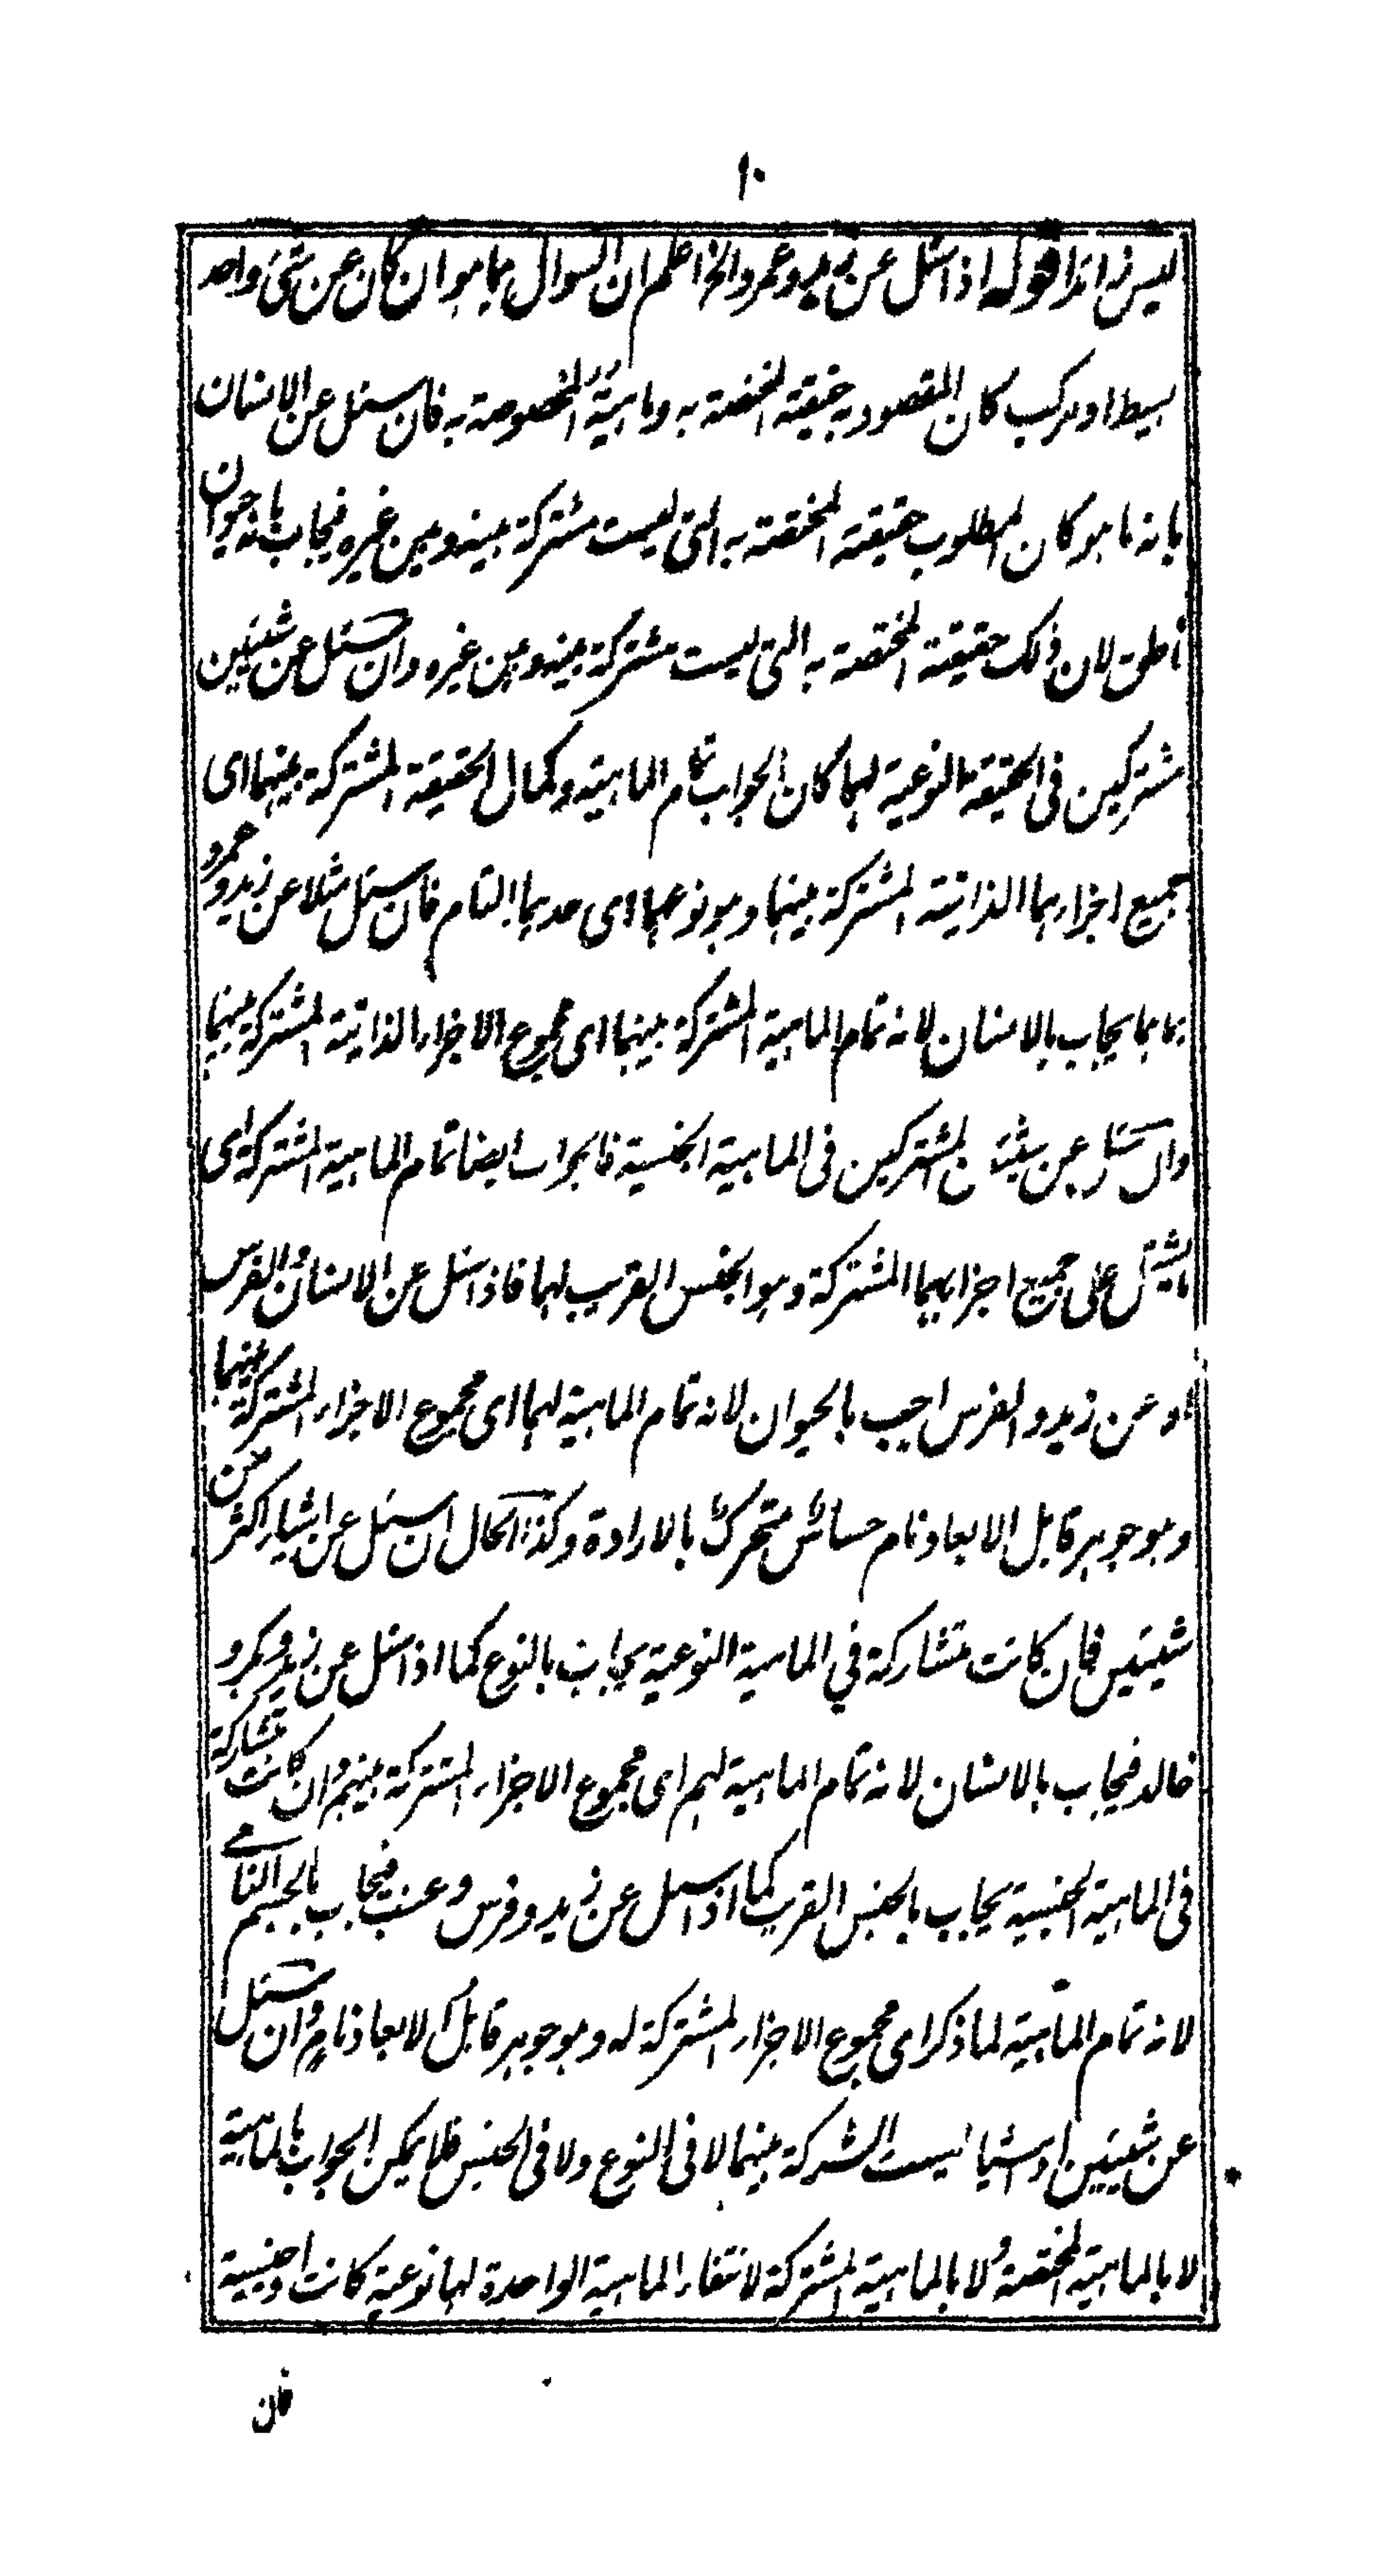 ۱۰
ليس زائدا قوله اذا سئل عن زيد وعمرو الخ اعلم ان السوال بما هو ان كان عن شئ واحد
بسيط او مركب كان المقصود به حقيقة المختصة به وماهية المخصوصة به فان سئل عن الانسان
بانه ما هو كان المطلوب حقيقته المختصة به التى ليست مشتركة بينه وبين غيره فيجاب بانه حيوان
ناطق لان ذلك حقيقته المختصة به التى ليست مشتركة بينه وبين غيره وان سئل عن شيئين
مشتركين فى الحقيقة النوعية لهما كان الجواب تمام الماهية وكمال الحقيقة المشتركة بينهما اى
جميع اجزاءهما الذاتية المشتركة بينهما وهو نوعهما اى حدهما التام فان سئل مثلا عن زيد وعمرو
بما هما يجاب بالانسان لانه تمام الماهية المشتركة بينهما اى مجموع الاجزاء الذاتية المشتركة بينهما
وان سئل عن شيئين المشتركين فى الماهية الجنسية فالجواب ايضا تمام الماهية المشتركة اى
ما يشتمل على جميع اجزائهما المشتركة وهو الجنس القريب لهما فاذا سئل عن الانسان والفرس
او عن زيد والفرس اجيب بالحيوان لانه تمام الماهية لهما اى مجموع الاجزاء المشتركة بينهما
وهو جوهر قابل الابعاد نام حساس متحرك بالارادة وكذا الحال ان سئل عن اشياء اكثر من
شيئين فان كانت متشاركة في الماهية النوعية يجاب بالنوع كما اذا سئل عن زيد وبكر و
خالد فيجاب بالانسان لانه تمام الماهية لهم اى مجموع الاجزاء المشتركة بينهم وان كانت متشاركة
فى الماهية الجنسية يجاب بالجنس القريب كما اذا سئل عن زيد وفرس وعنب فيجاب بالجسم النامى
لانه تمام الماهية لما ذكر اى مجموع الاجزاء المشتركة له وهو جوهر قابل الابعاد نام وان سئل
عن شيئين او اشيا ليست الشركة بينهما لا فى النوع ولا فى الجنس فلا يمكن الجواب بالماهية
لا بالماهية المختصة ولا بالماهية المشتركة لانتفاء الماهية الواحدة لهما نوعية كانت او جنسية
فان